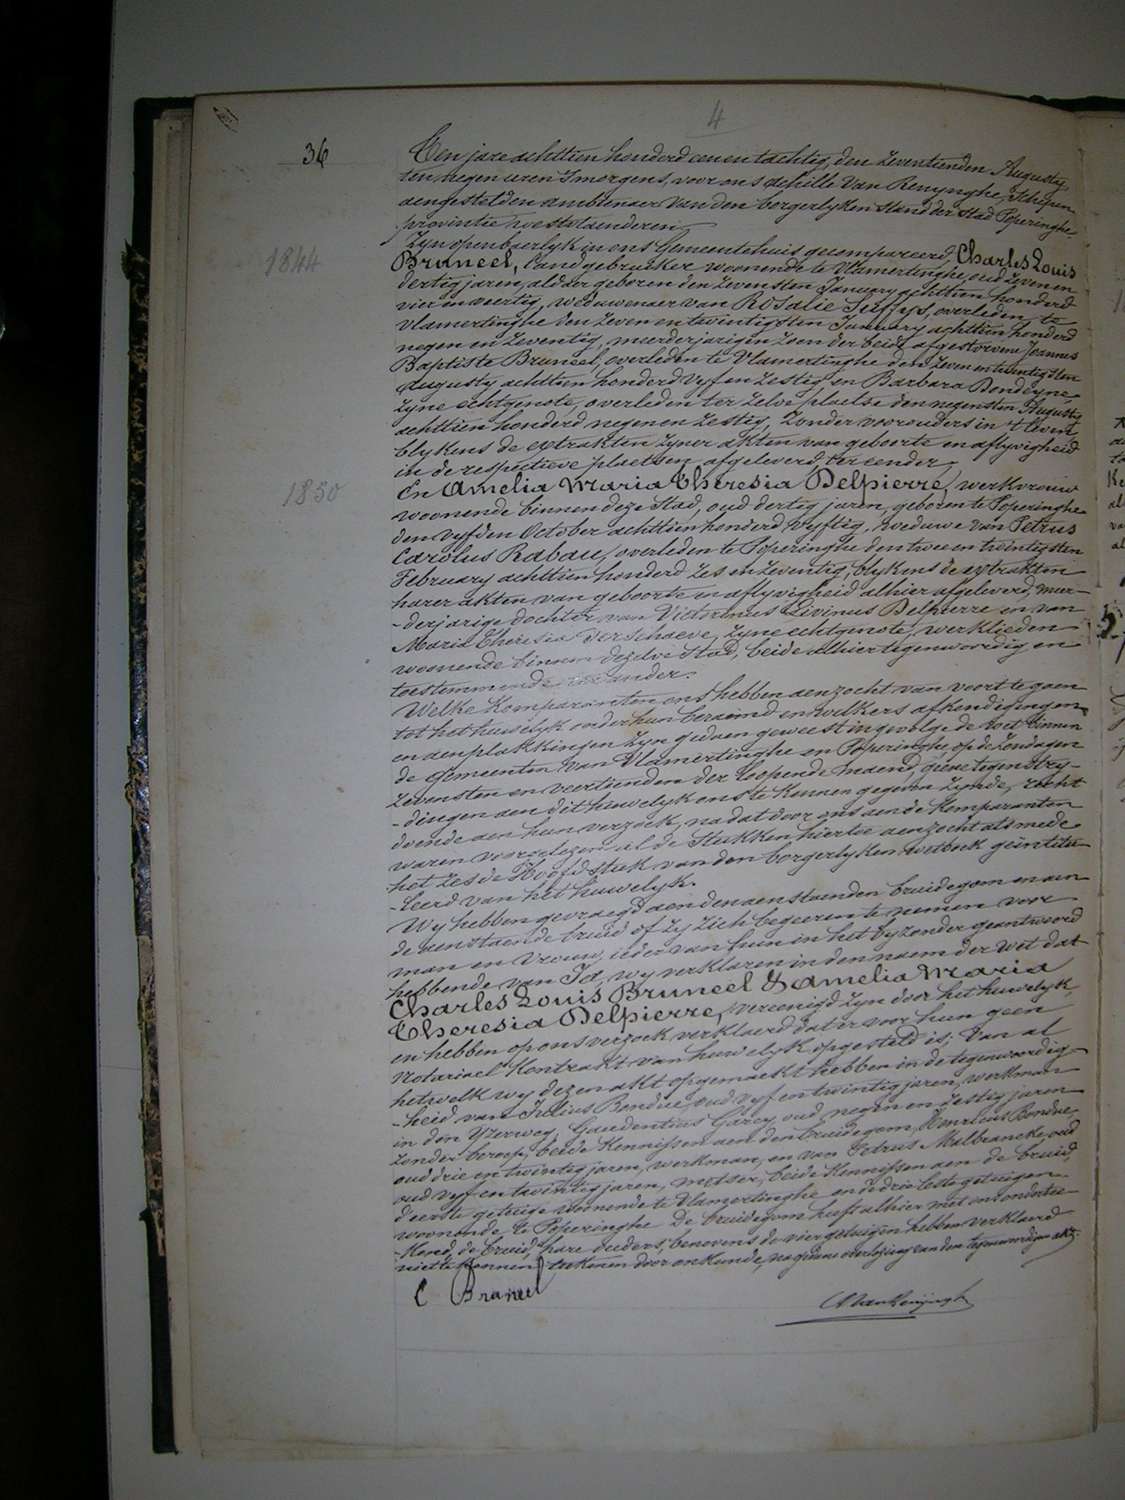 4
36
Ten jare achttien honderd een en tachtig, den zeventienden Augusty,
ten negen uren smorgens, voor ons Achille Van Renynghe, Schepen
aengestelden ambtenaer van den borgerlyken stand der stad Poperinghe
provintie westvlaenderen
Zyn openbaerlyk in ons Gemeentehuis gecompareerd, Charles Louis
1844
Bruneel, landgebruiker woonende te Vlamertinghe, oud zeven en
dertig jaren, aldaer geboren den zevensten January achttien honderd
vier en veertig, weduwenaer van Rosalie Suffys, overleden te
Vlamertinghe den zeven en twintigsten January achttien honderd
negen en zeventig, meerderjarigen zoon der beide afgestorvene Joannes
Baptiste Bruneel, overleden te Vlamertinghe den zeven en twintigsten
Augusty achttien honderd vyf en zestig en Barbara Bondeyne
zyne echtgenote, overleden ter zelve plaetse den negensten Augusty
achttien honderd negen en zestig, zonder voorouders in 't leven
blykens de extrakten zyner akten van geboorte en aflyvigheid
in de respectieve plaetsen afgeleverd, ter eender
1850
En Amelia Maria Theresia Delpierre, werkvrouw
woonende binnen deze stad, oud dertig jaren, geboren te Poperinghe
den vyfden October achttien honderd vyftig, weduwe van Petrus
Carolus Rabau, overleden te Poperinghe den twee en twintigsten
February achttien honderd zes en zeventig, blykens de extrakten
harer akten van geboorte en aflyvigheid alhier afgeleverd, meer-
-derjarige dochter van Victorinus Livinus Delpierre en van
Maria Theresia Verschaeve, zyne echtgenote, werklieden
woonende binnen dezelve stad, beide alhier tegenwoordig en
toestemmende ter ander.
Welke Komparanten ons hebben aenzocht van voort te gaen
tot het huwelyk onder hun beraemd en welkers afkondigingen
en aenplakkingen zyn gedaen geweest ingevolge de wet binnen
de gemeenten van Vlamertinghe en Poperinghe, op de zondagen
zevensten en veertienden der loopende maend, geene tegenstry-
-dingen aen dit huwelyk ons te kennen gegeven zynde, recht
doende aen hun verzoek, na dat door ons aen de Komparanten
waren voorgelezen al de Stukken hiertoe aenzocht alsmede
het zesde Hoofdstuk van den borgerlyken wetboek geïntitu-
-leerd van het huwelyk.
Wy hebben gevraegd aen den aenstaenden bruidegom en aen
de aenstaende bruid of zy zich begeeren te nemen voor
man en vrouw, ieder van hun in het byzonder geantwoord
hebbende van Ja, wy verklaren in den naem der Wet dat
Charles Louis Bruneel & Amelia Maria
Theresia Delpierre, vereenigd zyn door het huwelyk,
en hebben op ons verzoek verklaerd dat er voor hun geen
Notariael Kontrakt van huwelyk opgesteld is; Van al
hetwelk wy dezen akt opgemaekt hebben in de tegenwoordig-
-heid van Julius Bondue, oud vyf en twintig jaren, werkman
in den Yzerweg, Gaudentius Garcy oud negen en zestig jaren
zonder beroep, beide Kennissen aen den bruidegom, Henricus Bondue,
oud drie en twintig jaren, werkman, en van Petrus Malbrancke, oud
oud vyf en twintig jaren, metser, beide Kennissen aen de bruid,
d'eerste getuige woonende te Vlamertinghe en de drie leste getuigen
woonende te Poperinghe. De bruidegom heeft alhier met ons ondertee-
-kend, de bruid, hare ouders, benevens de vier getuigen hebben verklaerd
niet te konnen teekenen door onkunde, na gedane overlezing van den tegenwoordigen akt.
C Bruneel
A VanRenynghe